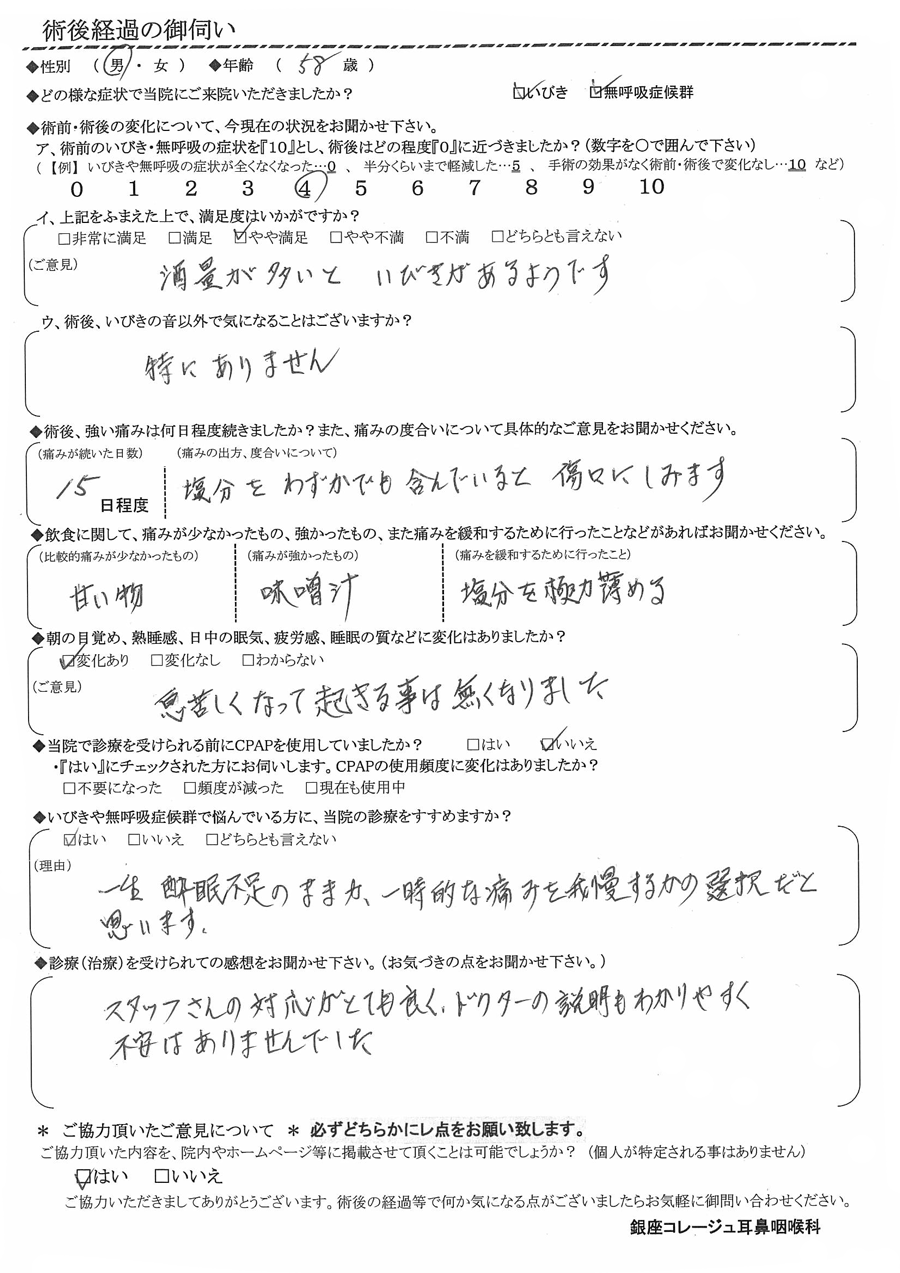 術後経過の御伺い
◆性別 ( 男 ・ 女 ) ◆年齢 ( 58 歳 )
◆どの様な症状で当院にご来院いただきましたか? ☑いびき ☑無呼吸症候群
◆術前・術後の変化について、今現在の状況をお聞かせ下さい。
ア、術前のいびき・無呼吸の症状を『10』とし、術後はどの程度『0』に近づきましたか?(数字を〇で囲んで下さい)
(【例】いびきや無呼吸の症状が全くなくなった…0 、 半分くらいまで軽減した…5 、 手術の効果がなく術前・術後で変化なし…10 など)
0 1 2 3 4 5 6 7 8 9 10
イ、上記をふまえた上で、満足度はいかがですか?
□非常に満足 □満足 ☑やや満足 □やや不満 □不満 □どちらとも言えない
(ご意見)
酒量が多いと いびきがあるようです
ウ、術後、いびきの音以外で気になることはございますか?
特にありません
◆術後、強い痛みは何日程度続きましたか?また、痛みの度合いについて具体的なご意見をお聞かせください。
(痛みが続いた日数) (痛みの出方、度合いについて)
15 日程度 塩分を わずかでも 含んでいると 傷口にしみます
◆飲食に関して、痛みが少なかったもの、強かったもの、また痛みを緩和するために行ったことなどがあればお聞かせください。
(比較的痛みが少なかったもの) (痛みが強かったもの) (痛みを緩和するために行ったこと)
甘い物 味噌汁 塩分を極力薄める
◆朝の目覚め、熟睡感、日中の眠気、疲労感、睡眠の質などに変化はありましたか?
☑変化あり □変化なし □わからない
(ご意見)
息苦しくなって起きる事は無くなりました
◆当院で診療を受けられる前にCPAPを使用していましたか? □はい ☑いいえ
・『はい』にチェックされた方にお伺いします。CPAPの使用頻度に変化はありましたか?
□不要になった □頻度が減った □現在も使用中
◆いびきや無呼吸症候群で悩んでいる方に、当院の診療をすすめますか?
☑はい □いいえ □どちらとも言えない
(理由)
一生 酔眠不足のままか、一時的な痛みを我慢するかの選択だと
思います。
◆診療(治療)を受けられての感想をお聞かせ下さい。(お気づきの点をお聞かせ下さい。)
スタッフさんの対応がとても良く、ドクターの説明もわかりやすく
不安はありませんでした
* ご協力頂いたご意見について * 必ずどちらかにレ点をお願い致します。
ご協力頂いた内容を、院内やホームページ等に掲載させて頂くことは可能でしょうか? (個人が特定される事はありません)
☑はい □いいえ
ご協力いただきましてありがとうございます。術後の経過等で何か気になる点がございましたらお気軽に御問い合わせください。
銀座コレージュ耳鼻咽喉科